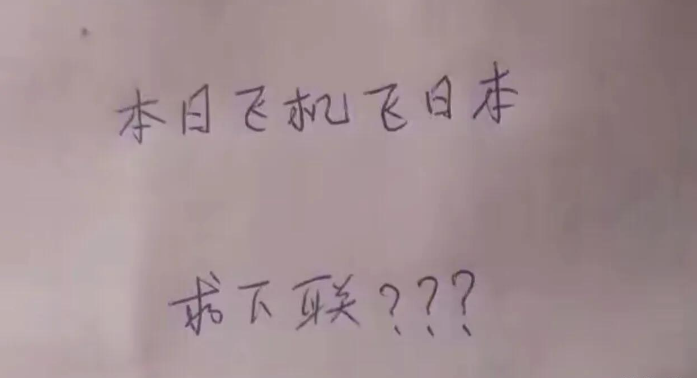 本日飞机飞日本
求下联???